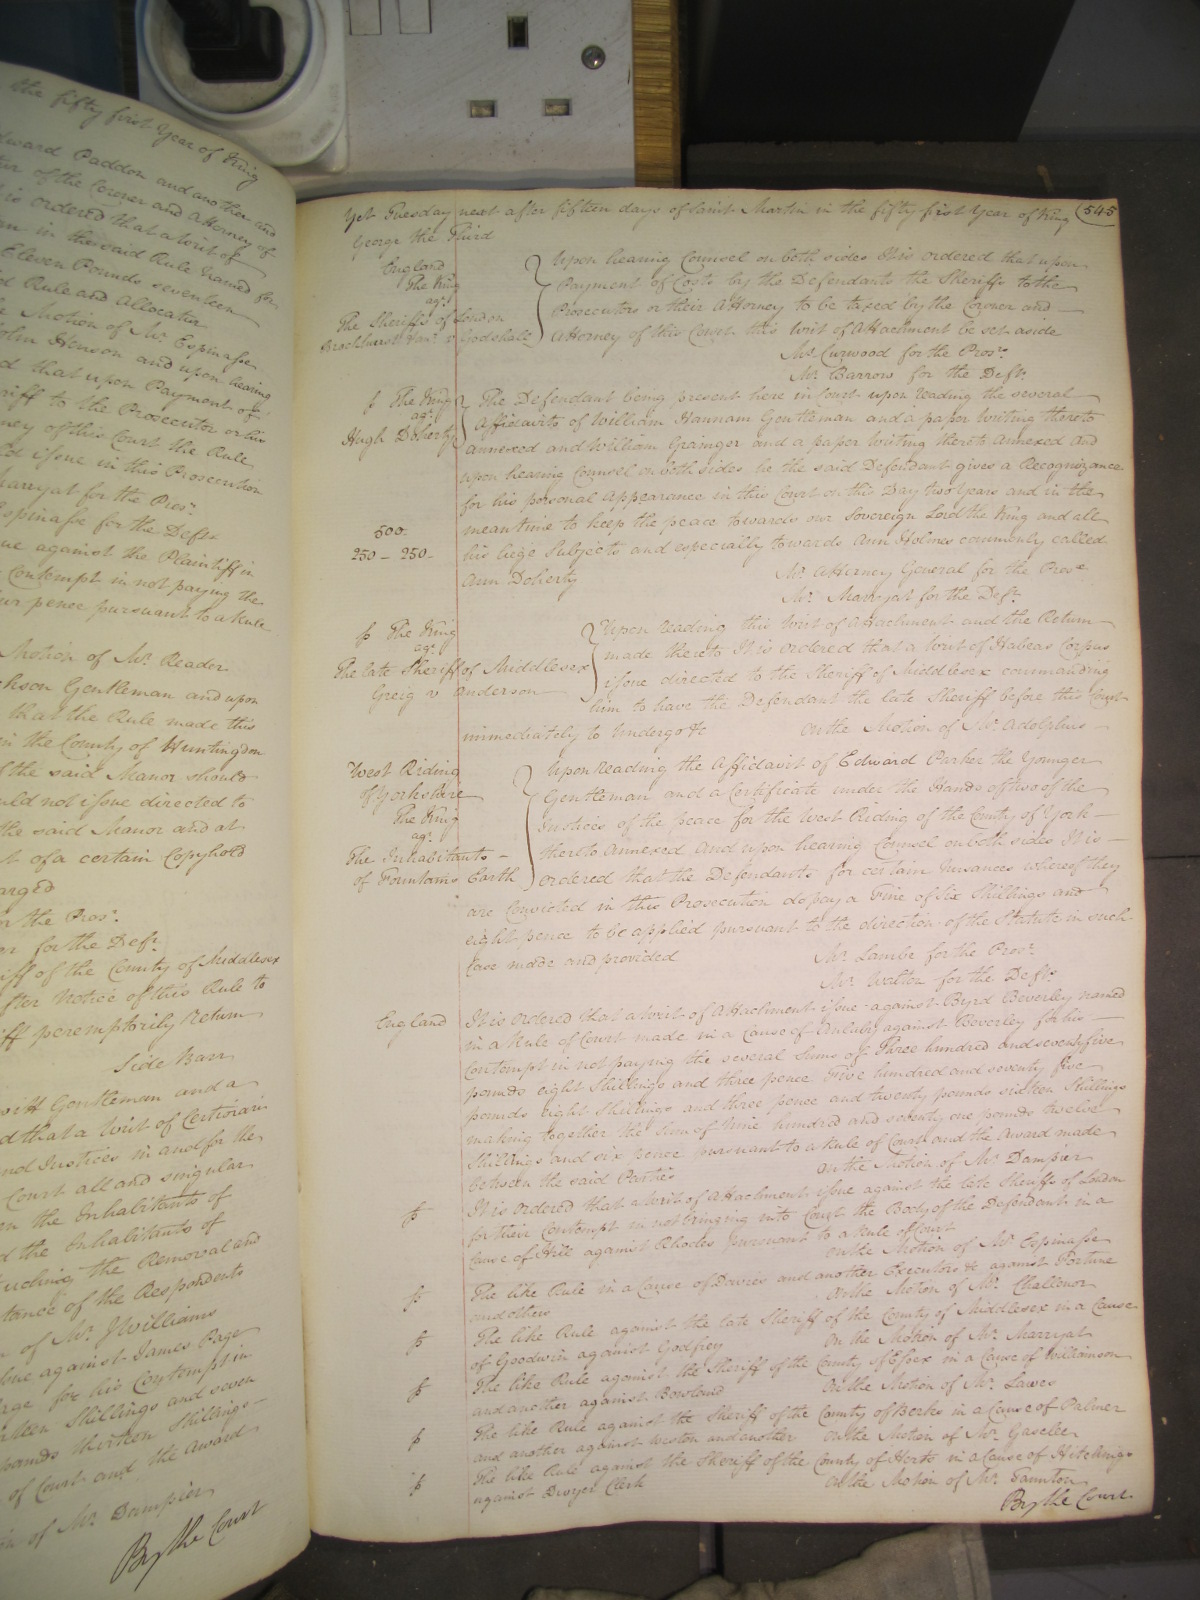 the fifty first Year of King
Edward Paddon and another and
of the Coroner and Attorney of
is ordered that a Writ of
in the said Rule Named for
Eleven Pounds seventeen
Rule and Allocatur
Motion of Mr. Espinasse
John Henson and upon hearing
that upon Payment of
to the Prosecutor or his
of this Court the Rule
issue in this Prosecution
Marryat for the Prosr.
Espinasse for the Deft.
against the Plaintiff in
Contempt in not paying the
four pence pursuant to a Rule
Motion of Mr. Reader
Gentleman and upon
that the Rule made this
in the County of Huntingdon
the said Manor should
not issue directed to
the said Manor and at
of a certain Copyhold
the Prosr.
for the Deft.
of the County of Middlesex
after Notice of this Rule to
peremptorily Return
Side Barr
Gentleman and a
that a Writ of Certiorari
and Justices in and for the
Court all and singular
the Inhabitants of
the Inhabitants of
touching the Removal and
of the Respondents
of Mr. Williams
against James Page
for his Contempt in
Shillings and seven
pounds thirteen Shillings
of Court and the Award
of Mr. Dampier
By the Court
Yet Tuesday next after fifteen days of Saint Martin in the fifty first Year of King 545
George the Third
England
The King
agt.
The Sheriffs of London
Godshall
Upon hearing Counsel on both sides It is ordered that upon
Payment of Costs by the Defendants the Sheriffs to the
Prosecutors or their Attorney to be taxed by the Coroner and
Attorney of this Court this Writ of Attachment be set aside
Mr. Curwood for the Prosr.
Mr. Barrow for the Deft.
fs The King
agt.
Hugh Doherty
The Defendant being present here in Court upon reading the several
Affidavits of William Hannam Gentleman and a paper Writing thereto
annexed and William Grainger and a paper Writing thereto annexed And
upon hearing Counsel on both sides he the said Defendant gives a Recognizance
for his personal Appearance in this Court on this Day two Years and in the
mean time to keep the peace towards our Sovereign Lord the King and all
500
250 - 250
his liege Subjects and especially towards Ann Holmes commonly called
Ann Doherty
Mr. Attorney General for the Prosr.
Mr. Marryat for the Deft.
fs The King
agt.
The late Sheriff of Middlesex
Greig v Anderson
Upon reading this Writ of Attachment and the Return
made thereto It is ordered that a Writ of Habeas Corpus
issue directed to the Sheriff of Middlesex commanding
him to have the Defendant the late Sheriff before this Court
immediately to undergo &c on the Motion of Mr. Adolphus
West Riding
of Yorkshire
The King
agt.
The Inhabitants
of Fountains Earth
Upon Reading the Affidavit of Edward Parker the Younger
Gentleman and a Certificate under the Hands of two of the
Justices of the peace for the West Riding of the County of York
thereto annexed And upon hearing Counsel on both sides It is
ordered that the Defendants for certain Nusances whereof they
are Convicted in this Prosecution do pay a Fine of Six Shillings and
eight pence to be applied pursuant to the direction of the Statute in such
Case made and provided
Mr. Lambe for the Prosr.
Mr. Walton for the Deft.
England
It is Ordered that a Writ of Attachment issue against Byrd Beverley named
in a Rule of Court made in a Cause of against Beverley for his
Contempt in not paying the several Sums of Three hundred and seventy five
pounds eight Shillings and three pence Five hundred and seventy five
pounds eight Shillings and three pence and twenty pounds sixteen Shillings
making together the Sum of Nine hundred and seventy one pounds twelve
Shillings and six pence pursuant to a Rule of Court and the Award made
between the said Parties on the Motion of Mr. Dampier
fs It is Ordered that a Writ of Attachment issue against the late Sheriffs of London
for their Contempt in not bringing into Court the Body of the Defendant in a
Cause of Hill against Rhodes pursuant to a Rule of Court
on the Motion of Mr. Espinasse
fs The like Rule in a Cause of Davies and another Executors &c against Fortune
and others on the Motion of Mr. Challenor
fs The like Rule against the late Sheriff of the County of Middlesex in a Cause
of Goodwin against Godfrey on the Motion of Mr. Marryat
fs The like Rule against the Sheriff of the County of Essex in a Cause of Williamson
and another against Bowland on the Motion of Mr. Lawes
fs The like Rule against the Sheriff of the County of Berks in a Cause of Palmer
and another against Weston and another on the Motion of Mr. Gaselee
fs The like Rule against the Sheriff of the County of Herts in a Cause of Hitchings
against Dwyer Clerk on the Motion of Mr. Taunton
By the Court